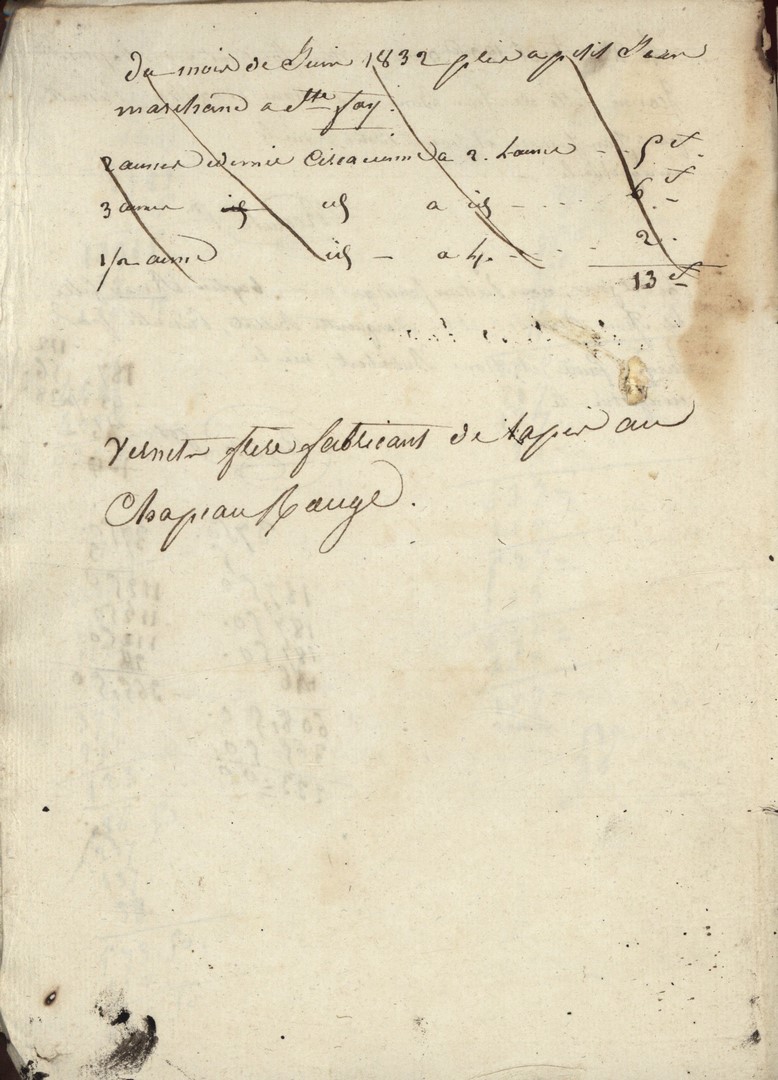 du mois de Juin 1832 plis a petit Jean
marchand a Ste foy.
2 aunes demie a 2. l'aune - - 5 #
3 aunes id id a id - . . . 6 #
1/2 aune id - a 4. - - . . . 2 . .
13 #
Vernet frere fabricant de tapis au
Chapeau Rouge.